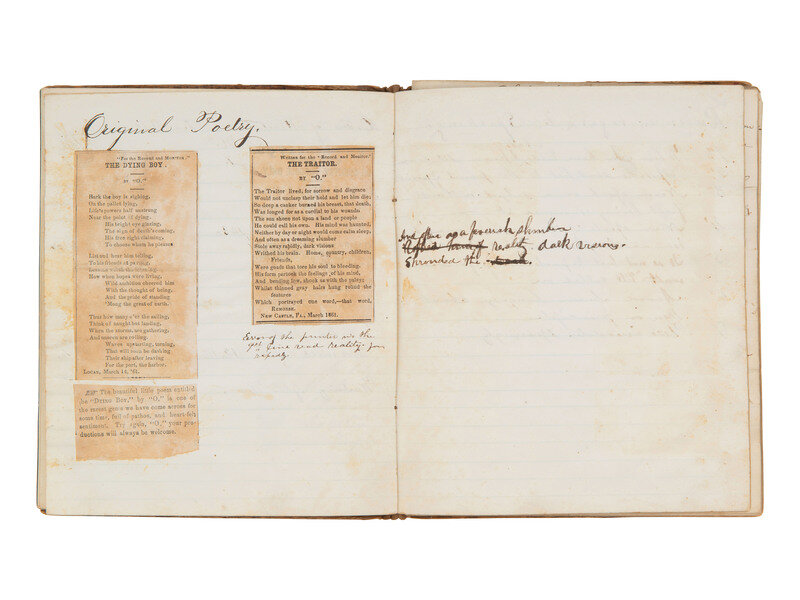 Original Poetry.
"For the Record and Monitor."
THE DYING BOY.
BY "O."
Hark the boy is sighing,
On the pallet lying,
Life's powers half unstrung
Near the point of dying.
His bright eye glazing,
The sign of death's coming,
His free right claiming,
To choose when he pleases
List and hear him telling,
To his friends at parting,
How when hopes were living,
Wild ambition cheered him
With the thought of being,
And the pride of standing
'Mong the great of earth.
Thus how many o'er the sailing,
Think of naught but landing,
When the storms are gathering,
And waves are rolling.
Waves upstarting, turning,
That will soon be dashing
Their ship after leaving
For the port, the harbor.
March 14, '61.
The beautiful little poem entitled
the "DYING BOY," by "O," is one of
the merest gems we have come across for
some time, full of pathos, and heart-felt
sentiment. Try again, "O," your pro-
ductions will always be welcome.
Written for the 'Record and Monitor.'
THE TRAITOR.
BY "O."
The Traitor lived, for sorrow and disgrace
Would not unclasp their hold and let him die;
So deep a canker burned his breast, that death,
Was longed for as a cordial to his wounds.
The sun shone not upon a land or people
He could call his own. His mind was haunted,
Neither by day or night would come calm sleep,
And often as a dreaming slumber
Stole away rapidly, dark visions
Writhed his brain. Home, country, children,
Friends,
Were goads that tore his soul to bleeding.
His form partook the feelings of his mind,
And bending low, shook as with the palsy
Whilst thinned gray hairs hung round the
features
Which portrayed one word,—that word,
REMORSE.
NEW CASTLE, PA., March 1861.
Error of the printer in the
9th line read reality for
rapidly
And often as a feverish slumber
reality dark visions.
Shrouded the